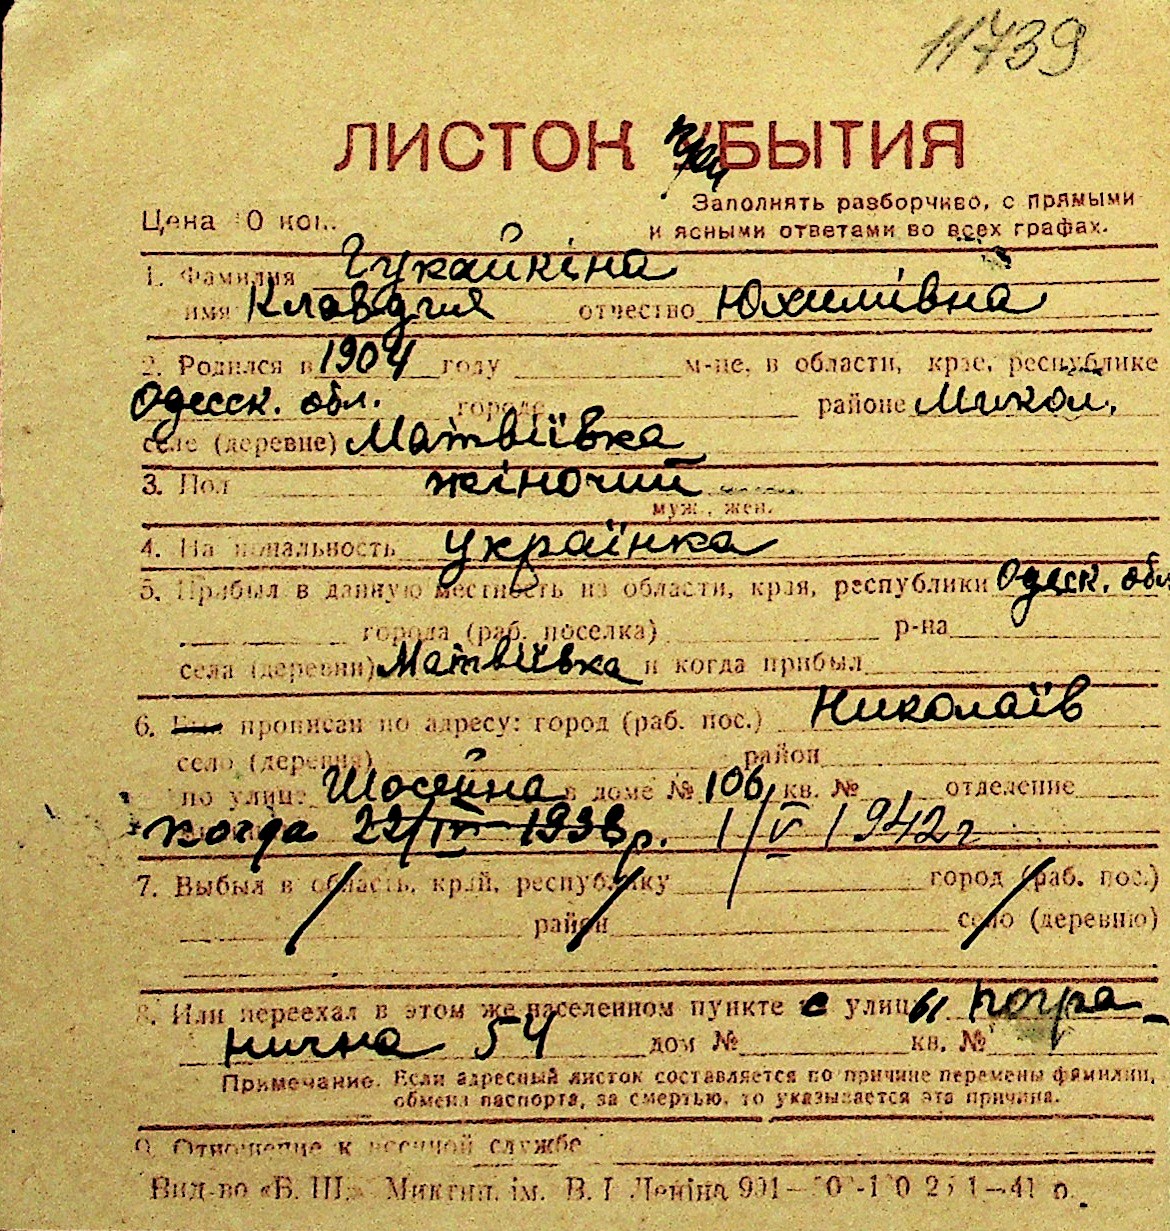 11739
ЛИСТОК при БЫТИЯ
Заполнять разборчиво, с прямыми
Цена 10 коп.
и ясными ответами во всех графах.
1. Фамилия Гукайкіна
имя Клавдия отчество Юхимівна
2. Родился в 1904 году м-це, в области, крае, республике
Одесск. обл. городе районе Микол.
селе (деревне) Матвіївка
3. Пол жіночий
муж., жен.
4. Национальность українка
5. Прибыл в данную местность из области, края, республики Одесск. обл.
города (раб. поселка) р-на
села (деревни) Матвіївка и когда прибыл
6. Был прописан по адресу: город (раб. пос.) Николаїв
село (деревня) район
по улице Шосейна в доме № 106 кв. № отделение
когда 22/IV 1938 р. 1/V 1942 г
7. Выбыл в область, край, республику город (раб. пос.)
район село (деревню)
8. Или переехал в этом же населенном пункте с улицы погра-
нична 54 дом № кв. №
Примечание. Если адресный листок составляется по причине перемены фамилии,
обмена паспорта, за смертью, то указывается эта причина.
9. Отношение к военной службе
Вид-во «Б. Ш.» Микпил. ім. В. І Леніна